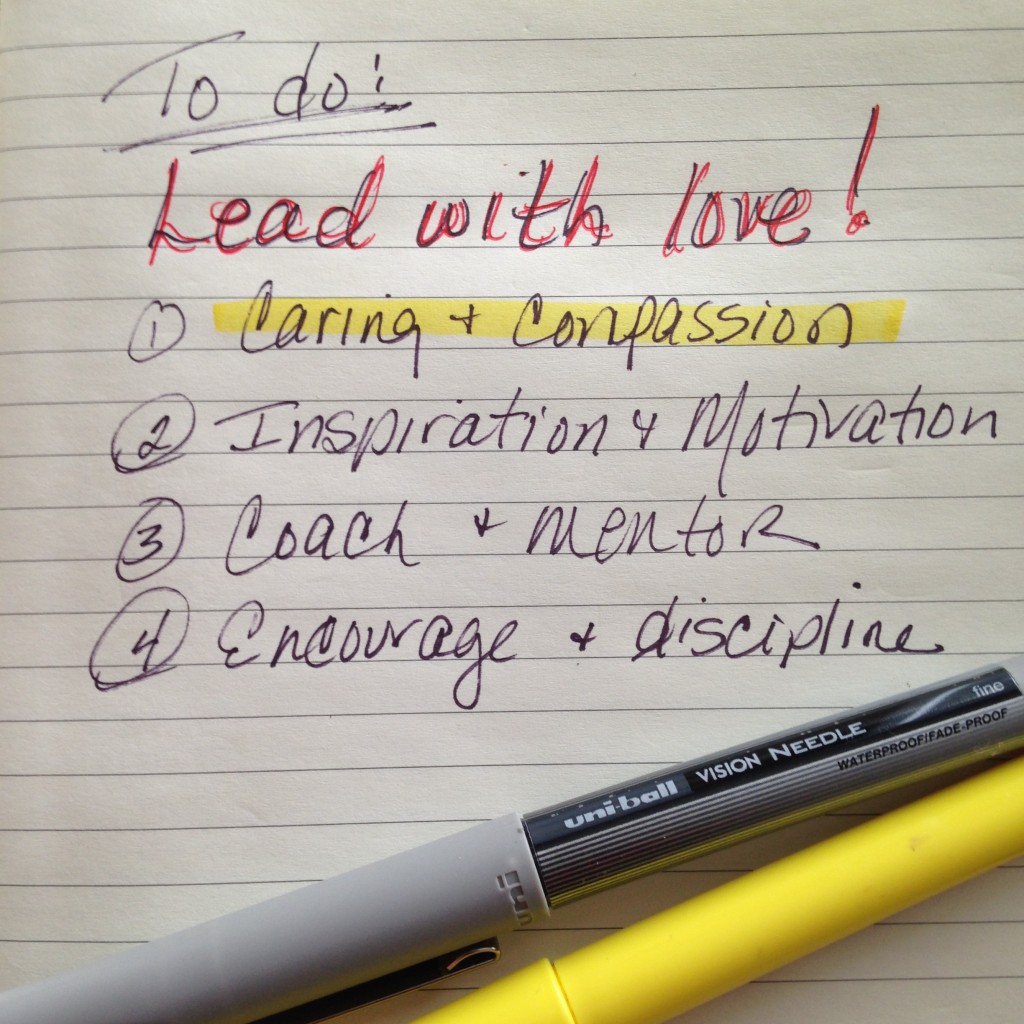 To do:
Lead with love!
1 Caring + Compassion
2 Inspiration + Motivation
3 Coach + mentor
4 Encourage + discipline
uni-ball VISION NEEDLE fine
WATERPROOF/FADE-PROOF
uni